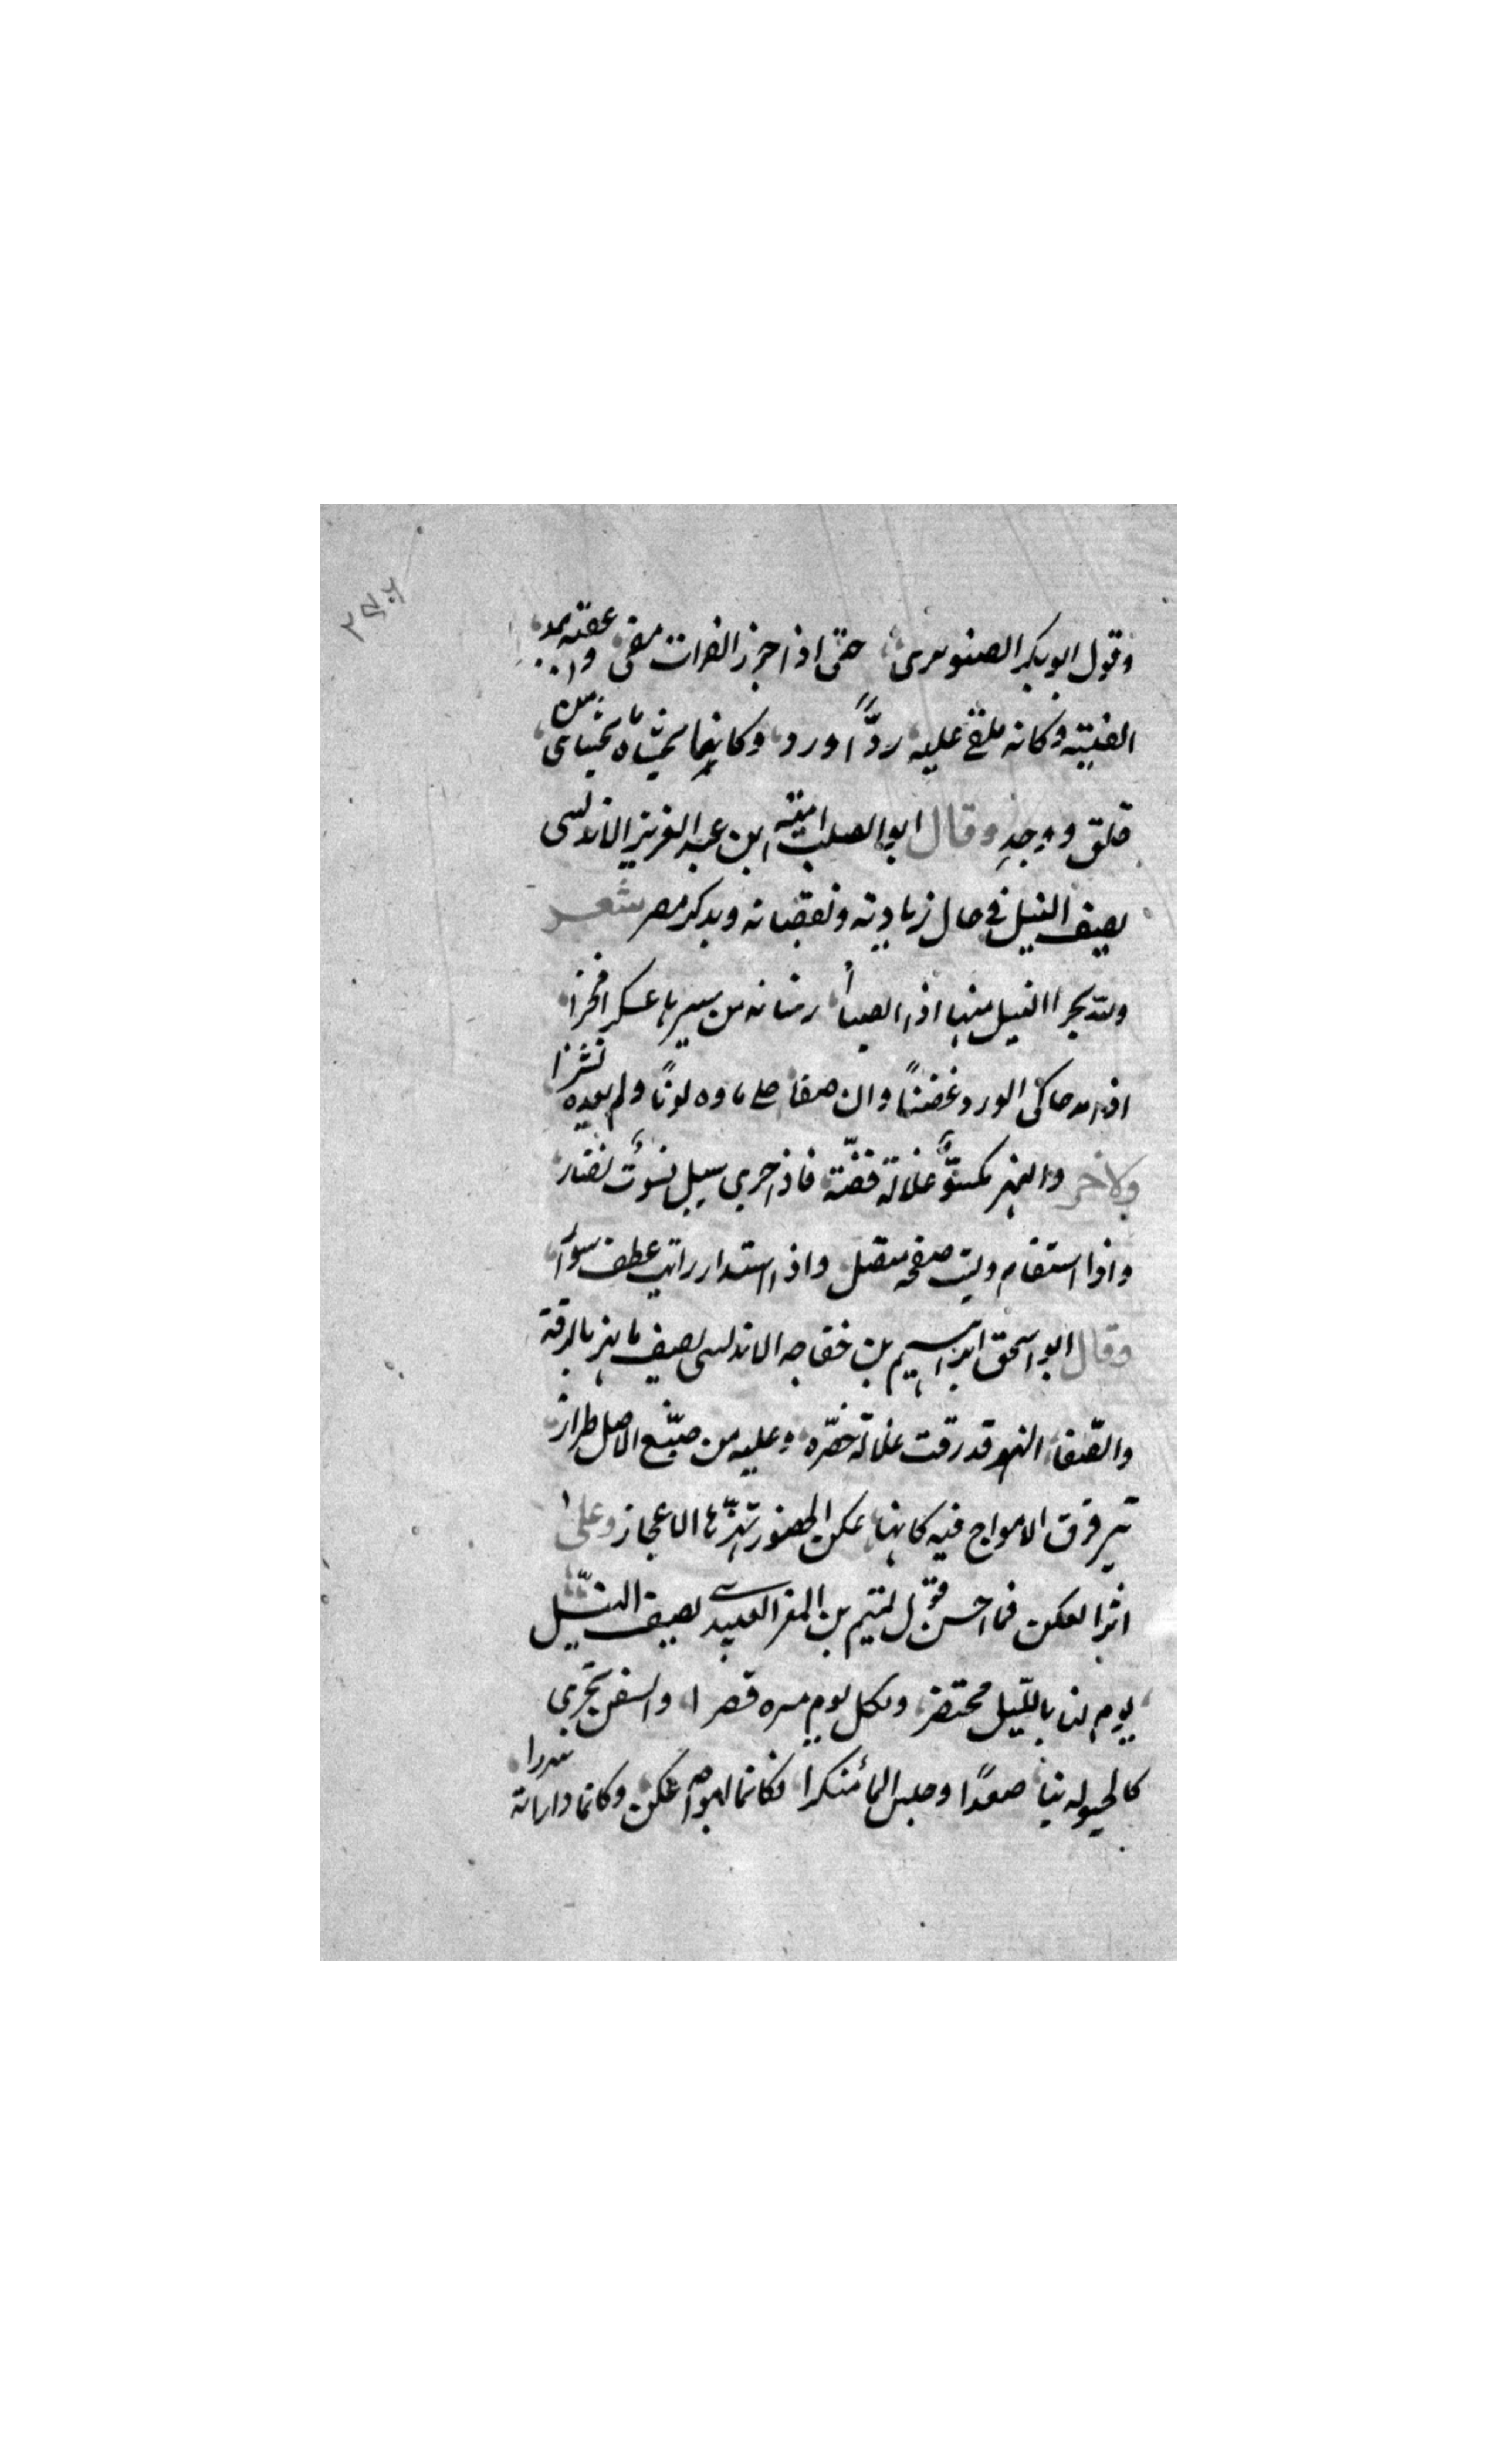 ٢٧٦
وقول ابو بكر الصنوبرى حتى اذا جزر الفرات مضى عقبه بمد
الفيته وكانه ملقى عليه ردآ ورد وكانما تحشاه تحشاى من
قلق ووجد وقال ابو الصلت امية ابن عبد العزيز الاندلسى
يصف النيل فى حال زيادته ونقصانه ويذكر مصر شعر
ولله مجرا النيل منها اذا الصبا ارتنا به من سيرها عسكرا مجزا
اذا مد حاكى الورد غضا وان صفا حكى ماوه لونا ولم يعده نشرا
ولاخر والنهر مكسو غلالة فضة فاذا جرى سيل فثوب نضار
واذا استقام رايت صفحه منصل واذا استدار رايت عطف سوار
وقال ابو اسحق ابراهيم بن خفاجه الاندلسى يصف ما بنهر بالرقة
والصفا النهر قد رقت غلالة خصره وعليه من صبغ الاصيل طراز
تترقرق الامواج فيه كانها عكن الخصور تهزها الاعجاز وعلى
اثر العكن فما احسن قول لتميم بن المعز العبيدى يصف النيل
يوم لنا بالنيل مختصر ولكل يوم مسرة قصرا والسفن تجرى
كالخيول بنا صعدا وجيش الما منكدرا فكانما امواجه عكن وكانما داراته سررا